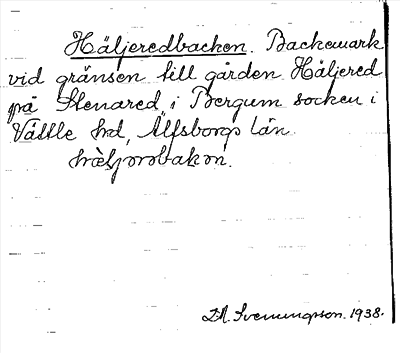 Häljeredbacken. Backemark
vid gränsen till gården Håljered
på Stenared i Bergum socken i
Vättle hd, Älfsborgs län.
D.A. Svenungson. 1938.